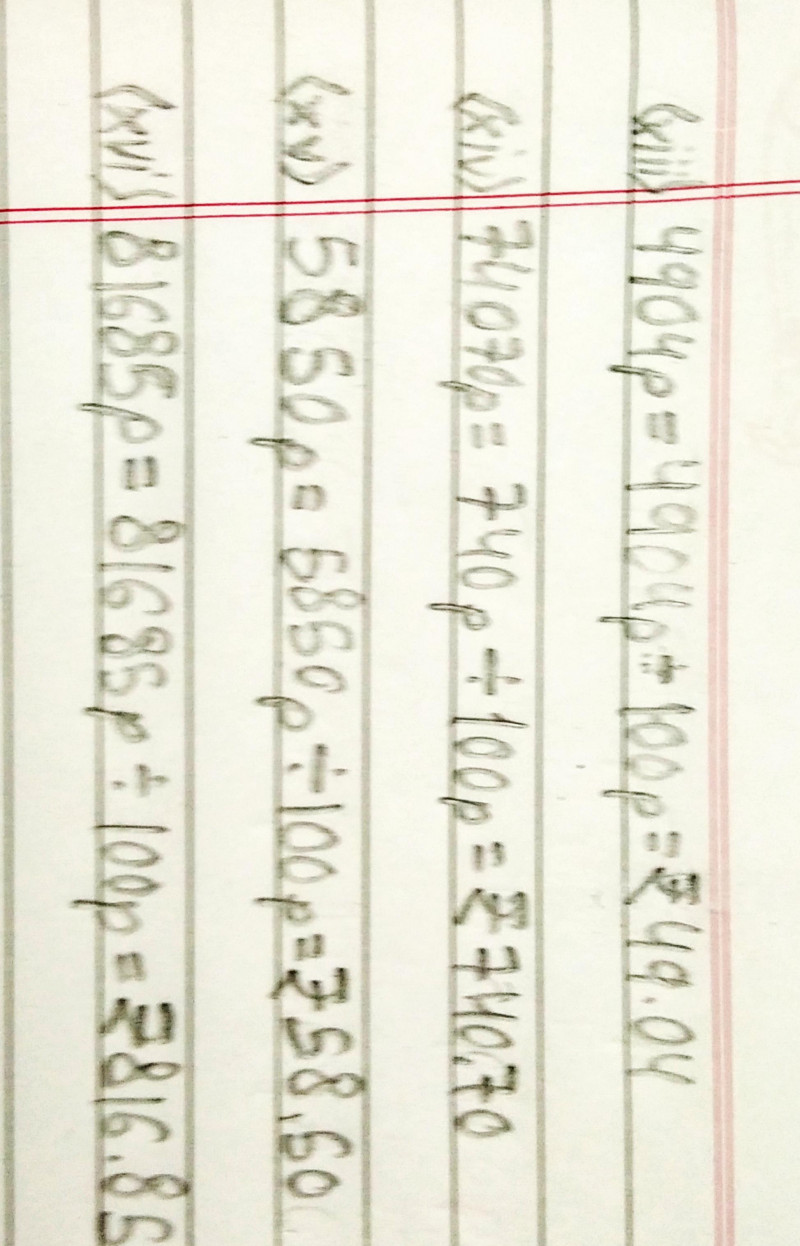 (xiii) 4904p = 4904p ÷ 100p = ₹49.04
(xiv) 74070p = 740p ÷ 100p = ₹740.70
(xv) 5850p = 5850p ÷ 100p = ₹58.50
(xvi) 81685p = 81685p ÷ 100p = ₹816.85